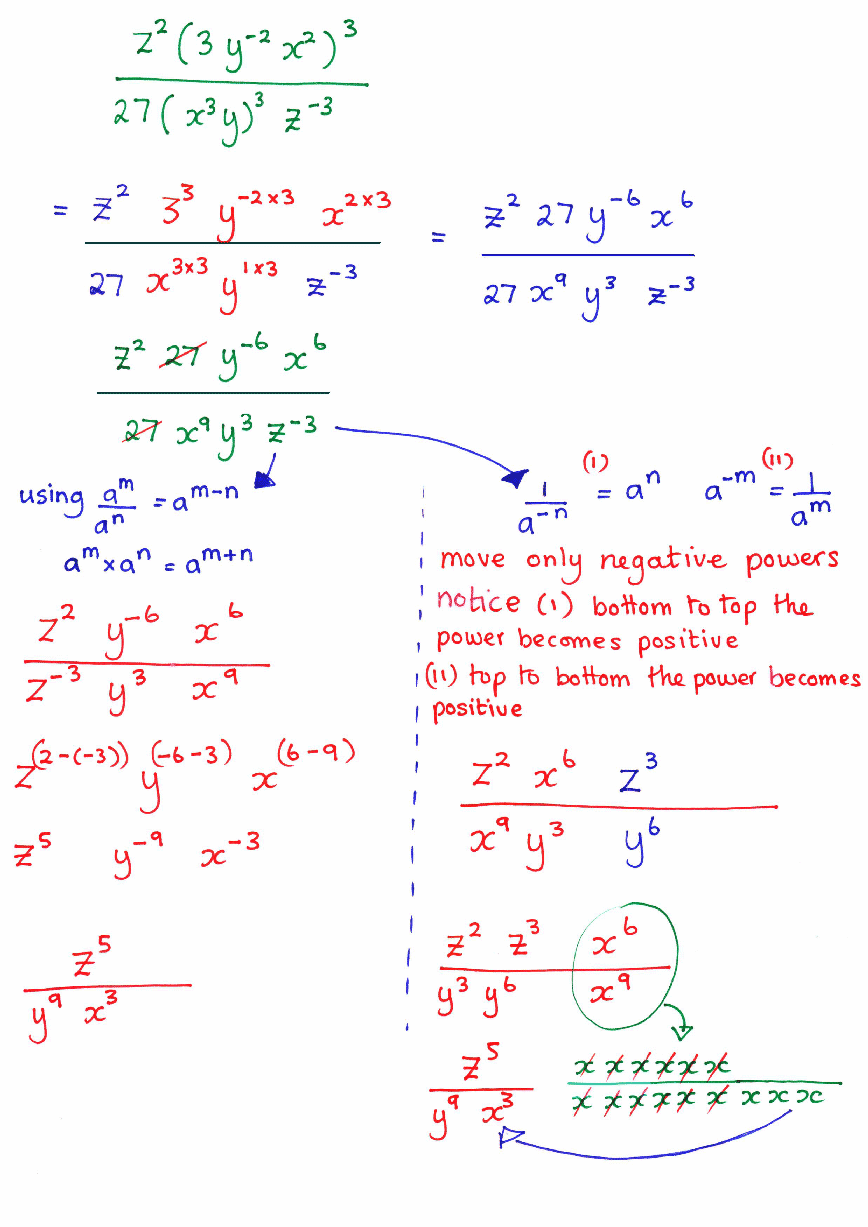 z² (3 y⁻² x²)³
27 (x³y)³ z⁻³
= z² 3³ y⁻²ˣ³ x²ˣ³
27 x³ˣ³ y¹ˣ³ z⁻³
= z² 27 y⁻⁶ x⁶
27 x⁹ y³ z⁻³
z² 27 y⁻⁶ x⁶
27 x⁹ y³ z⁻³
using aᵐ/aⁿ = aᵐ⁻ⁿ
aᵐ × aⁿ = aᵐ⁺ⁿ
z² y⁻⁶ x⁶
z⁻³ y³ x⁹
z⁽²⁻⁽⁻³⁾⁾ y⁽⁻⁶⁻³⁾ x⁽⁶⁻⁹⁾
z⁵ y⁻⁹ x⁻³
z⁵
y⁹ x³
(i) (ii)
1/a⁻ⁿ = aⁿ a⁻ᵐ = 1/aᵐ
move only negative powers
notice (i) bottom to top the
power becomes positive
(ii) top to bottom the power becomes
positive
z² x⁶ z³
x⁹ y³ y⁶
z² z³ x⁶
y³ y⁶ x⁹
z⁵
y⁹ x³
x x x x x x
x x x x x x x x x